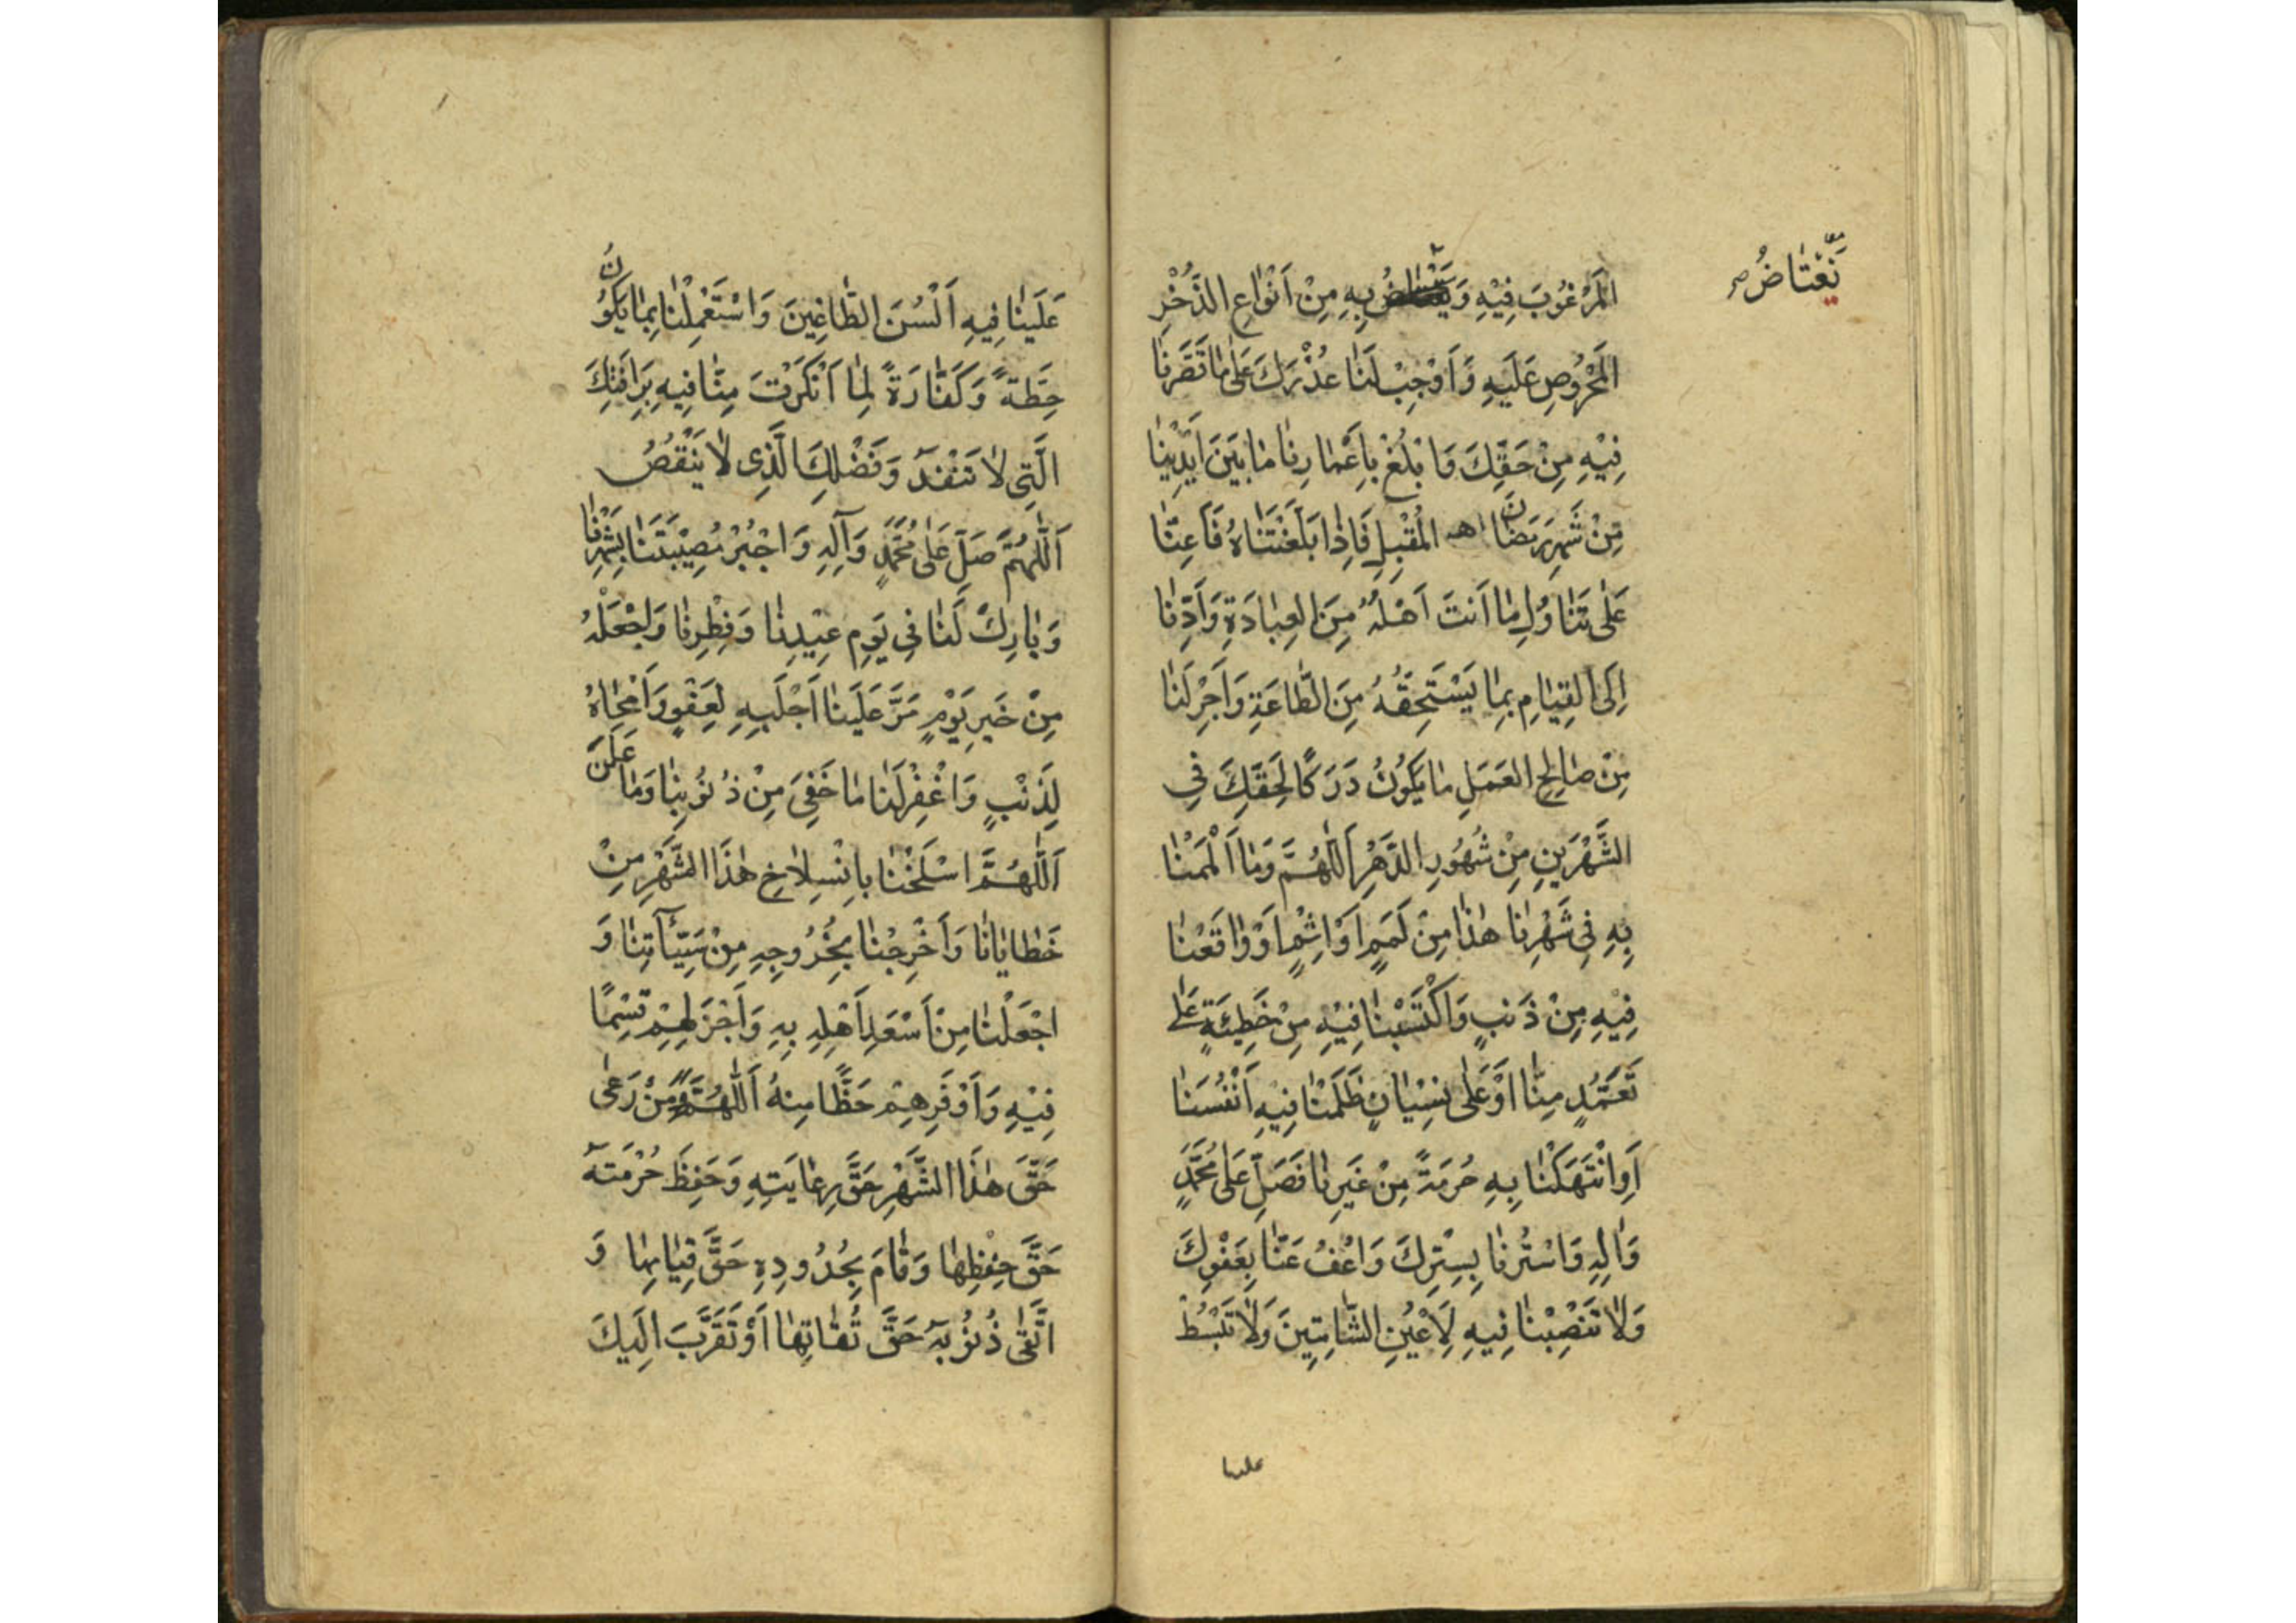 نَعْتَاضُ صح
المَرْغُوبَ فِيْهِ وَيَعْتَاضُ بِهِ مِنْ اَنْوَاعِ الذُّخْرِ
المَحْرُوصِ عَلَيهِ وَاَوْجِبْ لَنَا عُذْرَكَ عَلٰى مَا قَصَّرنَا
فِيْهِ مِنْ حَقِّكَ وَابْلُغْ بِاَعْمَارِنَا مَا بَيْنَ اَيْدِيْنَا
مِّنْ شَهرِ رَمَضَانَ المُقْبِلِ فَاِذَا بَلَّغْتَنَاهُ فَاَعِنَّا
عَلٰى تَنَاوُلِ مَا اَنتَ اَهْلُهُ مِنَ العِبَادَةِ وَاَدِّنَا
اِلَى القِيَامِ بِمَا يَسْتَحِقُّهُ مِنَ الطَّاعَةِ وَاَجْرِ لَنَا
مِنْ صَالِحِ العَمَلِ مَا يَكُوْنُ دَرَكًا لِحَقِّكَ فِي
الشَّهْرَينِ مِنْ شُهُورِ الدَّهْرِ اَللّٰهُمَّ وَمَا اَلْمَمْنَا
بِهِ فِي شَهْرِنَا هٰذَا مِنْ لَمَمٍ اَوْ اِثْمٍ اَوْ وَاقَعْنَا
فِيْهِ مِنْ ذَنبٍ وَاكْتَسَبْنَا فِيْهِ مِنْ خَطِيْئَةٍ عَلٰى
تَعَمُّدٍ مِنَّا اَوْ عَلٰى نِسْيَانٍ ظَلَمْنَا فِيهِ اَنْفُسَنَا
اَوِ انْتَهَكْنَا بِهِ حُرمَةً مِنْ غَيرِنَا فَصَلِّ عَلٰى مُحَمَّدٍ
وَاٰلِهِ وَاسْتُرنَا بِسِتْرِكَ وَاعْفُ عَنَّا بِعَفْوِكَ
وَلَا تَنْصِبْنَا فِيهِ لِاَعْيُنِ الشَّامِتِينَ وَلَا تَبْسُطْ
علينا
عَلَينَا فِيهِ اَلْسُنَ الطَّاغِينَ وَاسْتَعْمِلْنَا بِمَا يَكُوْنُ
حِطَّةً وَكَفَّارَةً لِمَا اَنْكَرْتَ مِنَّا فِيهِ بِرَأفَتِكَ
الَّتِي لَا تَنْفَدُ وَفَضْلِكَ الَّذِي لَا يَنْقُصُ
اَللّٰهُمَّ صَلِّ عَلٰى مُحَمَّدٍ وَآلِهِ وَاجْبُرْ مُصِيْبَتَنَا بِشَهْرِنَا
وَبَارِكْ لَنَا فِي يَومِ عِيْدِنَا وَفِطْرِنَا وَاجْعَلْهُ
مِنْ خَيرِ يَوْمٍ مَرَّ عَلَينَا اَجْلَبِهِ لِعَفْوٍ وَاَمْحَاهُ
لِذَنْبٍ وَاغْفِرْ لَنَا مَا خَفِيَ مِنْ ذُنُوْبِنَا وَمَا عَلَنَ
اَللّٰهُمَّ اسْلَخْنَا بِانْسِلَاخِ هٰذَا الشَّهْرِ مِنْ
خَطَايَانَا وَاَخْرِجْنَا بِخُرُوجِهِ مِنْ سَيِّئَاتِنَا وَ
اجْعَلْنَا مِنْ اَسْعَدِ اَهْلِهِ بِهِ وَاَجْزَلِهِمْ قِسْمًا
فِيْهِ وَاَوْفَرِهِمْ حَظًّا مِنهُ اَللّٰهُمَّ وَمَنْ رَعٰى
حَقَّ هٰذَا الشَّهْرِ حَقَّ رِعَايَتِهِ وَحَفِظَ حُرْمَتَهُ
حَقَّ حِفْظِهَا وَقَامَ بِحُدُودِهِ حَقَّ قِيَامِهَا وَ
اتَّقٰى ذُنُوْبَهُ حَقَّ تُقَاتِهَا اَوْ تَقَرَّبَ اِلَيكَ